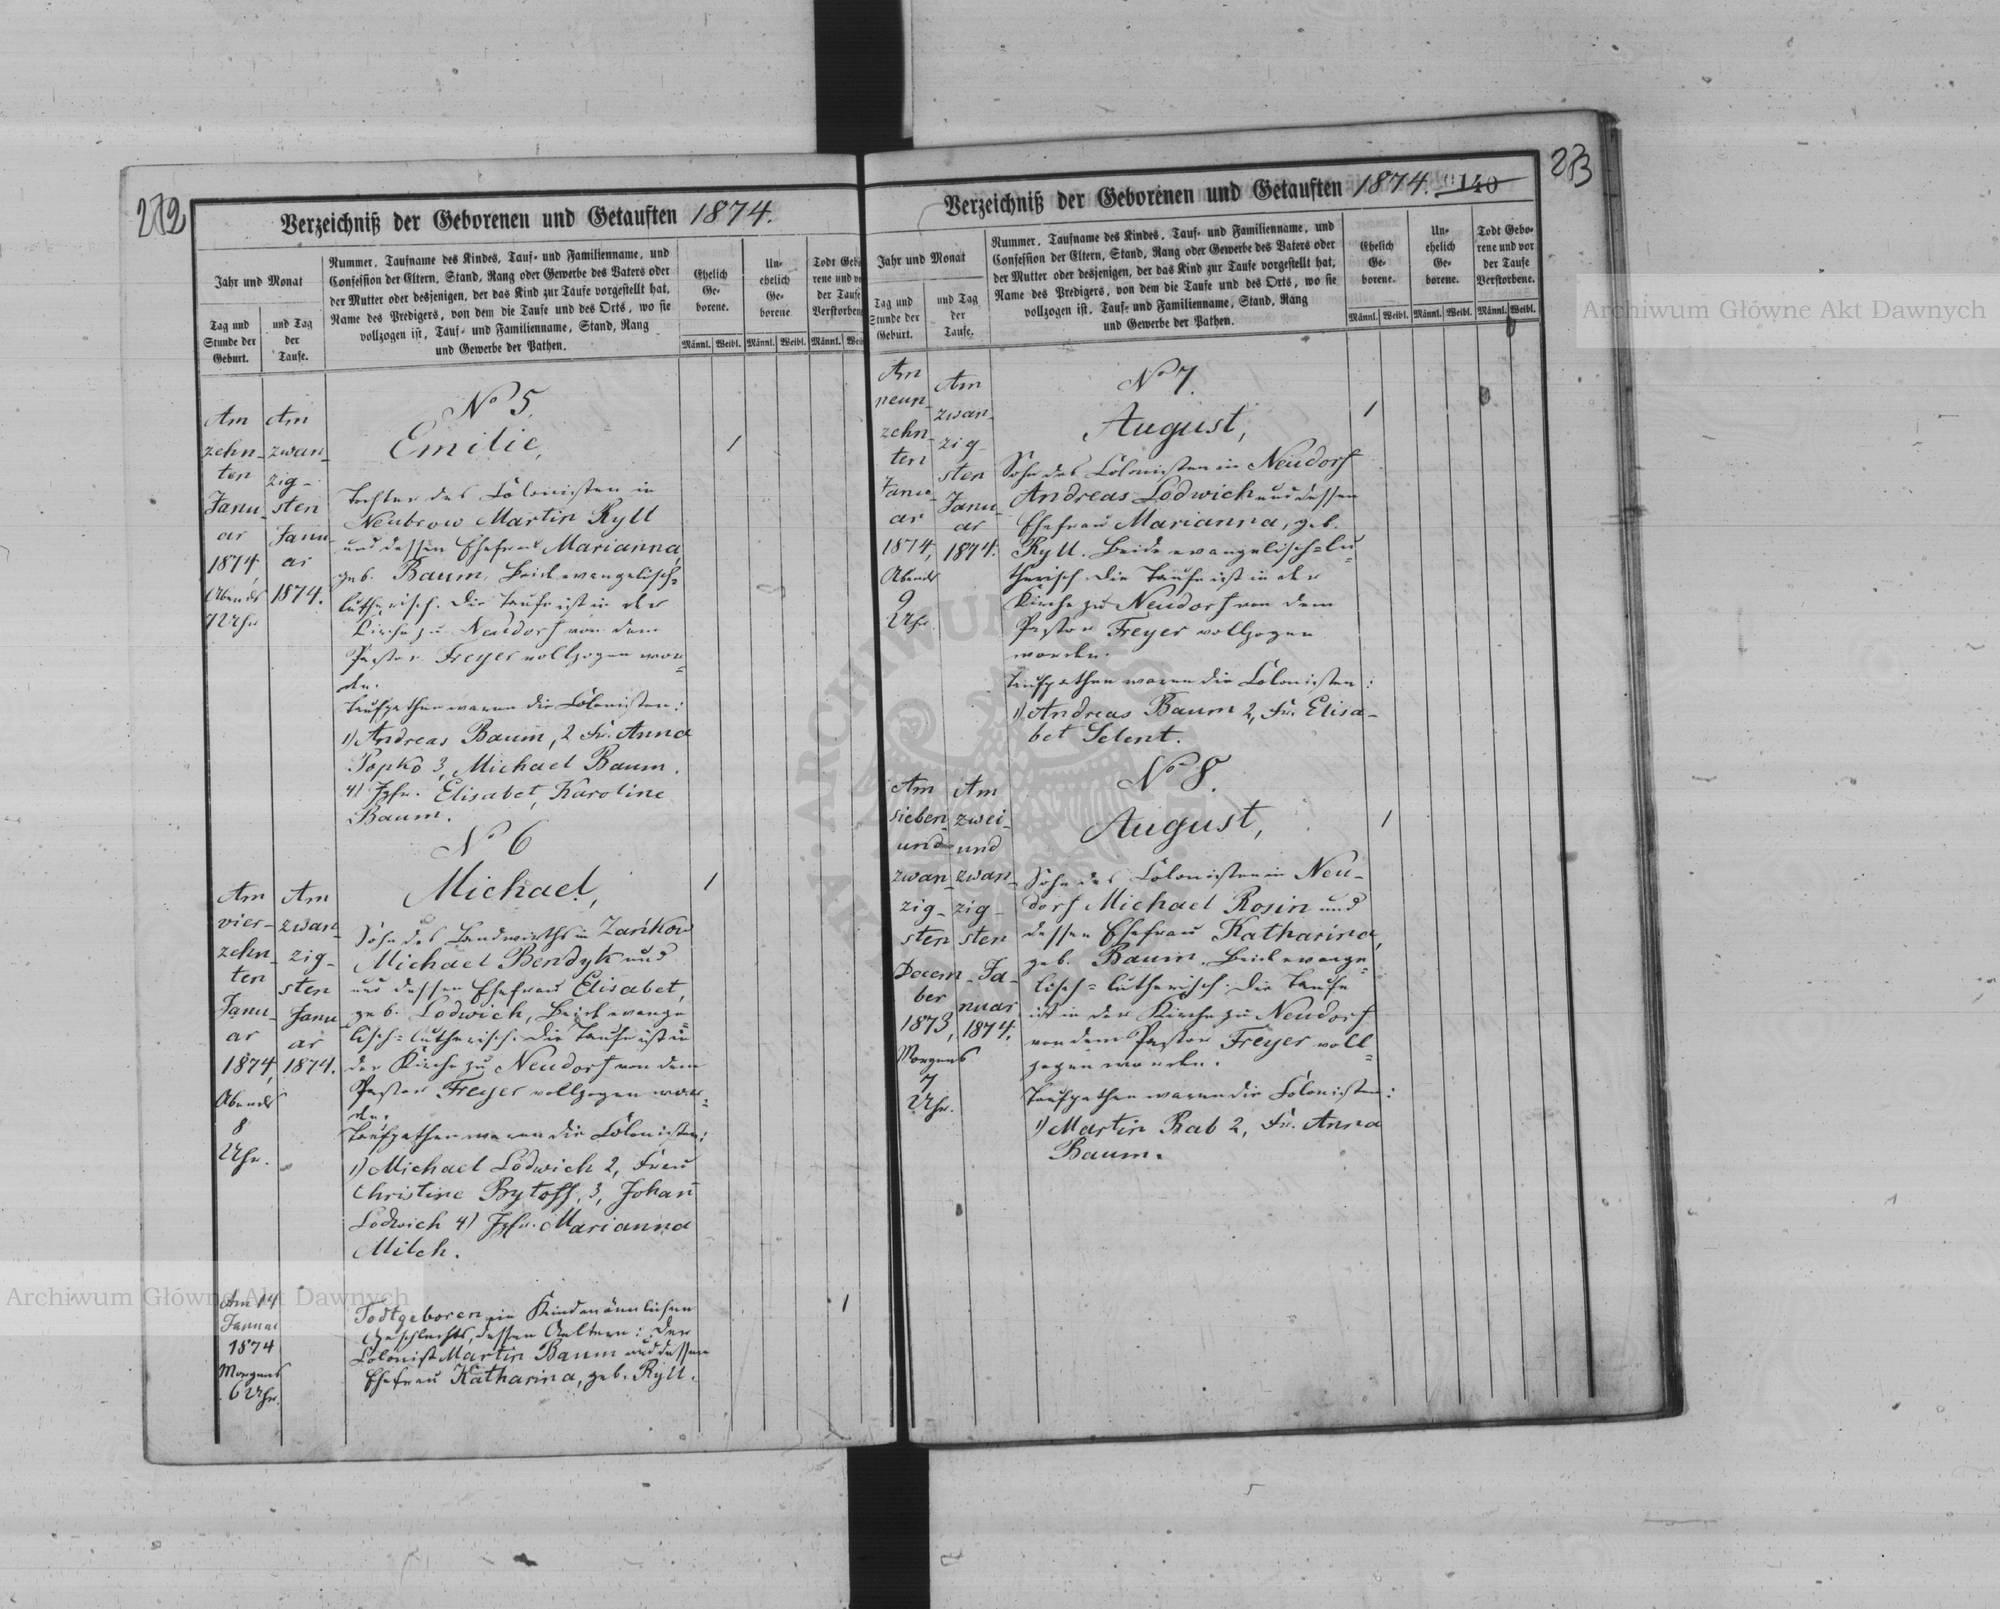 272
Verzeichniß der Geborenen und Getauften 1874.
Jahr und Monat
Tag und
Stunde der
Geburt.
und Tag
der
Taufe.
Nummer, Taufname des Kindes, Tauf- und Familienname, und
Confession der Eltern, Stand, Rang oder Gewerbe des Vaters oder
der Mutter oder desjenigen, der das Kind zur Taufe vorgestellt hat,
Name des Predigers, von dem die Taufe und des Orts, wo sie
vollzogen ist, Tauf- und Familienname, Stand, Rang
und Gewerbe der Pathen.
Ehelich
Ge-
borene.
Un-
ehelich
Ge-
borene
Todt Geb
rene und v
der Taufe
Verstorben
Männl. Weibl. Männl. Weibl. Männl. Wei
Am
zehn-
ten
Janu-
ar
1874,
Abends
7 Uhr
Am
zwan-
zig-
sten
Janu-
ar
1874.
No 5.
Emilie,
1
Tochter des Colonisten in
Neubrow Martin Ryll
und dessen Ehefrau Marianna,
geb. Baum, Beide evangelisch-
lutherisch. Die Taufe ist in der
Kirche zu Neudorf von dem
Pastor Freyer vollzogen wor-
den.
Taufpathen waren die Colonisten:
1) Andreas Baum, 2 Fr. Anna
Popko 3, Michael Baum.
4) Jgfr. Elisabet, Karoline
Baum.
Am
vier-
zehn-
ten
Janu-
ar
1874,
Abends
8
Uhr.
Am
zwan-
zig-
sten
Janu
ar
1874.
No 6
Michael,
1
Sohn des Landwirths in Zańkow
Michael Bendyk und
und dessen Ehefrau Elisabet,
geb. Lodwich, Beide evange-
lisch-lutherisch. Die Taufe ist in
der Kirche zu Neudorf von dem
Pastor Freyer vollzogen wor-
den.
Taufpathen waren die Colonisten:
1) Michael Lodwich 2, Frau
Christine Bytoff, 3, Johan̄
Lodwich 4) Jgfr. Marianna
Milch.
Am 14
Januar
1874
Morgens
6 Uhr.
Todtgeboren ein Kind männlichen
Geschlechts, dessen Aeltern: der
Colonist Martin Baum und dessen
Ehefrau Katharina, geb. Ryll.
1
273
Verzeichniß der Geborenen und Getauften 1874. 140
Jahr und Monat
Tag und
Stunde der
Geburt.
und Tag
der
Taufe.
Nummer, Taufname des Kindes, Tauf- und Familienname, und
Confession der Eltern, Stand, Rang oder Gewerbe des Vaters oder
der Mutter oder desjenigen, der das Kind zur Taufe vorgestellt hat,
Name des Predigers, von dem die Taufe und des Orts, wo sie
vollzogen ist, Tauf- und Familienname, Stand, Rang
und Gewerbe der Pathen.
Ehelich
Ge-
borene.
Un-
ehelich
Ge-
borene.
Todt Gebo-
rene und vor
der Taufe
Verstorbene.
Männl. Weibl. Männl. Weibl. Männl. Weibl.
Am
neun-
zehn-
ten
Janu-
ar
1874,
Abends
9
Uhr.
Am
zwan-
zig-
sten
Janu-
ar
1874.
No 7.
August,
1
Sohn des Colonisten in Neudorf
Andreas Lodwich und dessen
Ehefrau Marianna, geb.
Ryll. Beide evangelisch-lu-
therisch. Die Taufe ist in der
Kirche zu Neudorf von dem
Pastor Freyer vollzogen
worden.
Taufpathen waren die Colonisten:
1) Andreas Baum 2, Fr. Elisa-
bet Selent.
Am
sieben-
und
zwan-
zig-
sten
Decem-
ber
1873,
Morgens
7
Uhr.
Am
zwei-
und
zwan-
zig-
sten
Ja-
nuar
1874.
No 8.
August,
1
Sohn des Colonisten in Neu-
dorf Michael Rosin und
dessen Ehefrau Katharina,
geb. Baum. Beide evange-
lisch-lutherisch. Die Taufe
ist in der Kirche zu Neudorf
von dem Pastor Freyer voll-
zogen worden.
Taufpathen waren die Colonisten:
1) Martin Rab 2, Fr. Anna
Baum.
Archiwum Główne Akt Dawnych
Archiwum Główne Akt Dawnych